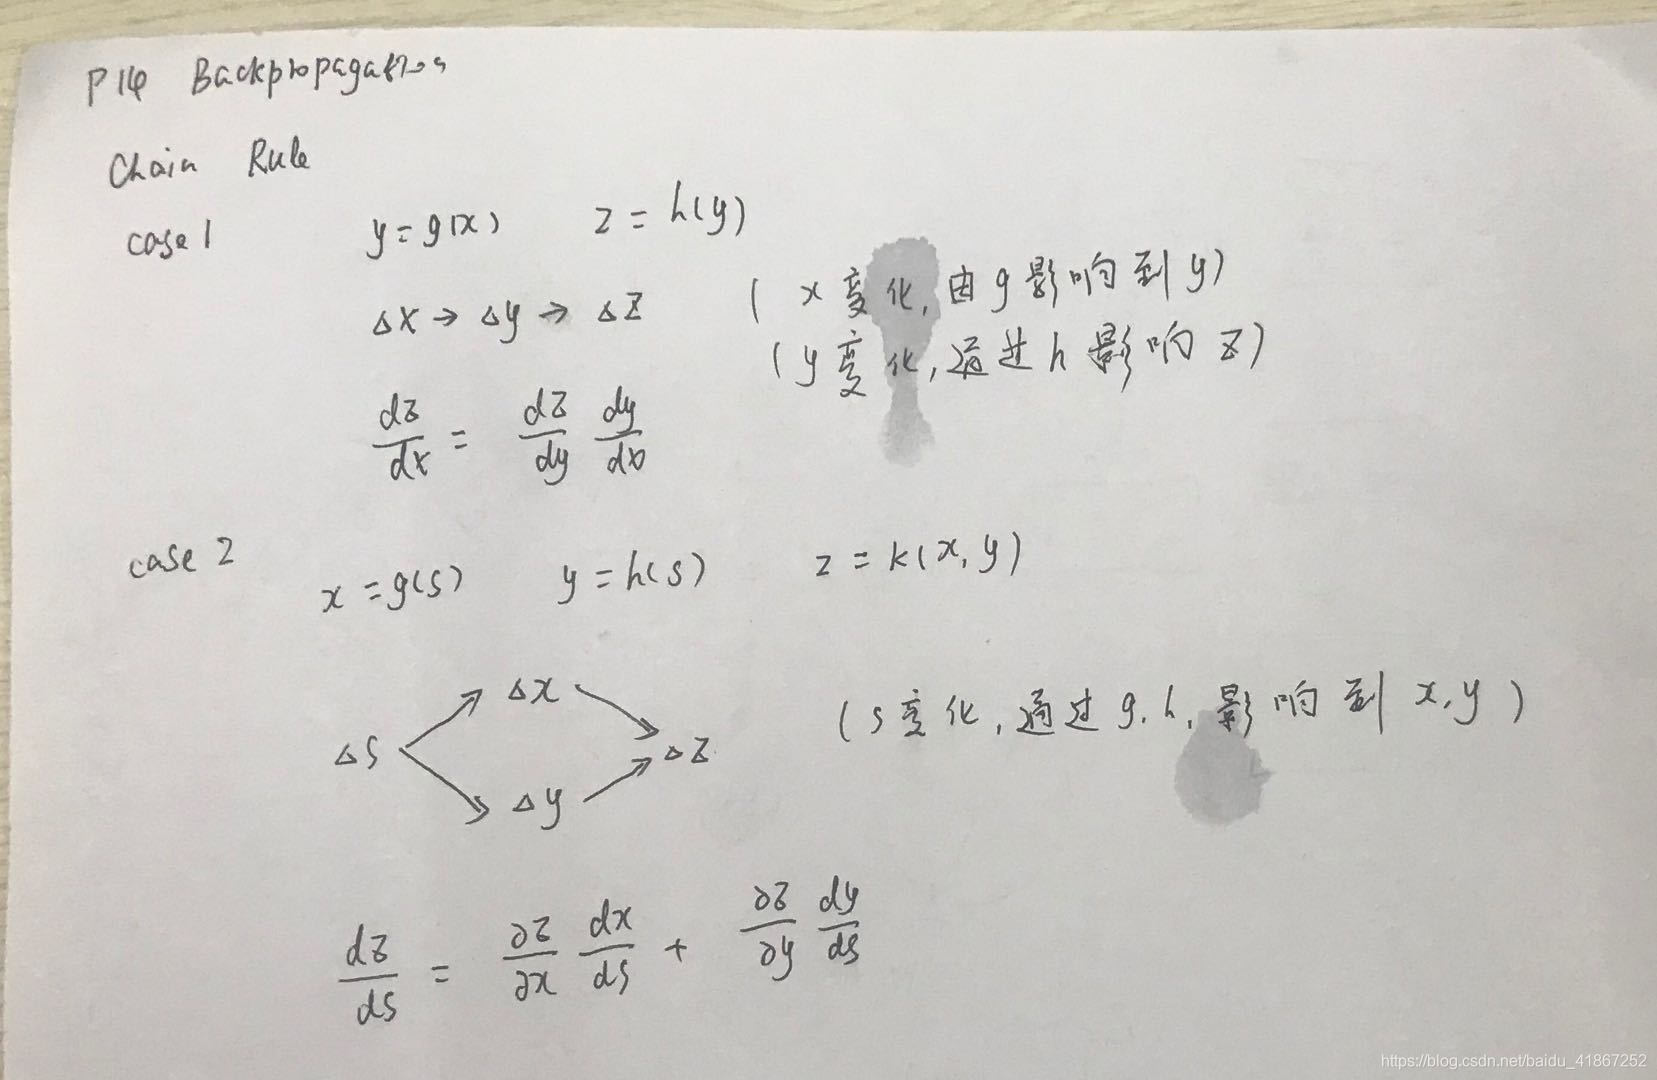 P14 Backpropagation
Chain Rule
case 1 y=g(x) z=h(y)
Δx→Δy→Δz (x变化,由g影响到y)
(y变化,通过h影响z)
dz/dx = dz/dy dy/dx
case 2 x=g(s) y=h(s) z=k(x,y)
Δx
Δs Δz (s变化,通过g.h,影响到x,y)
Δy
dz/ds = ∂z/∂x dx/ds + ∂z/∂y dy/ds
https://blog.csdn.net/baidu_41867252